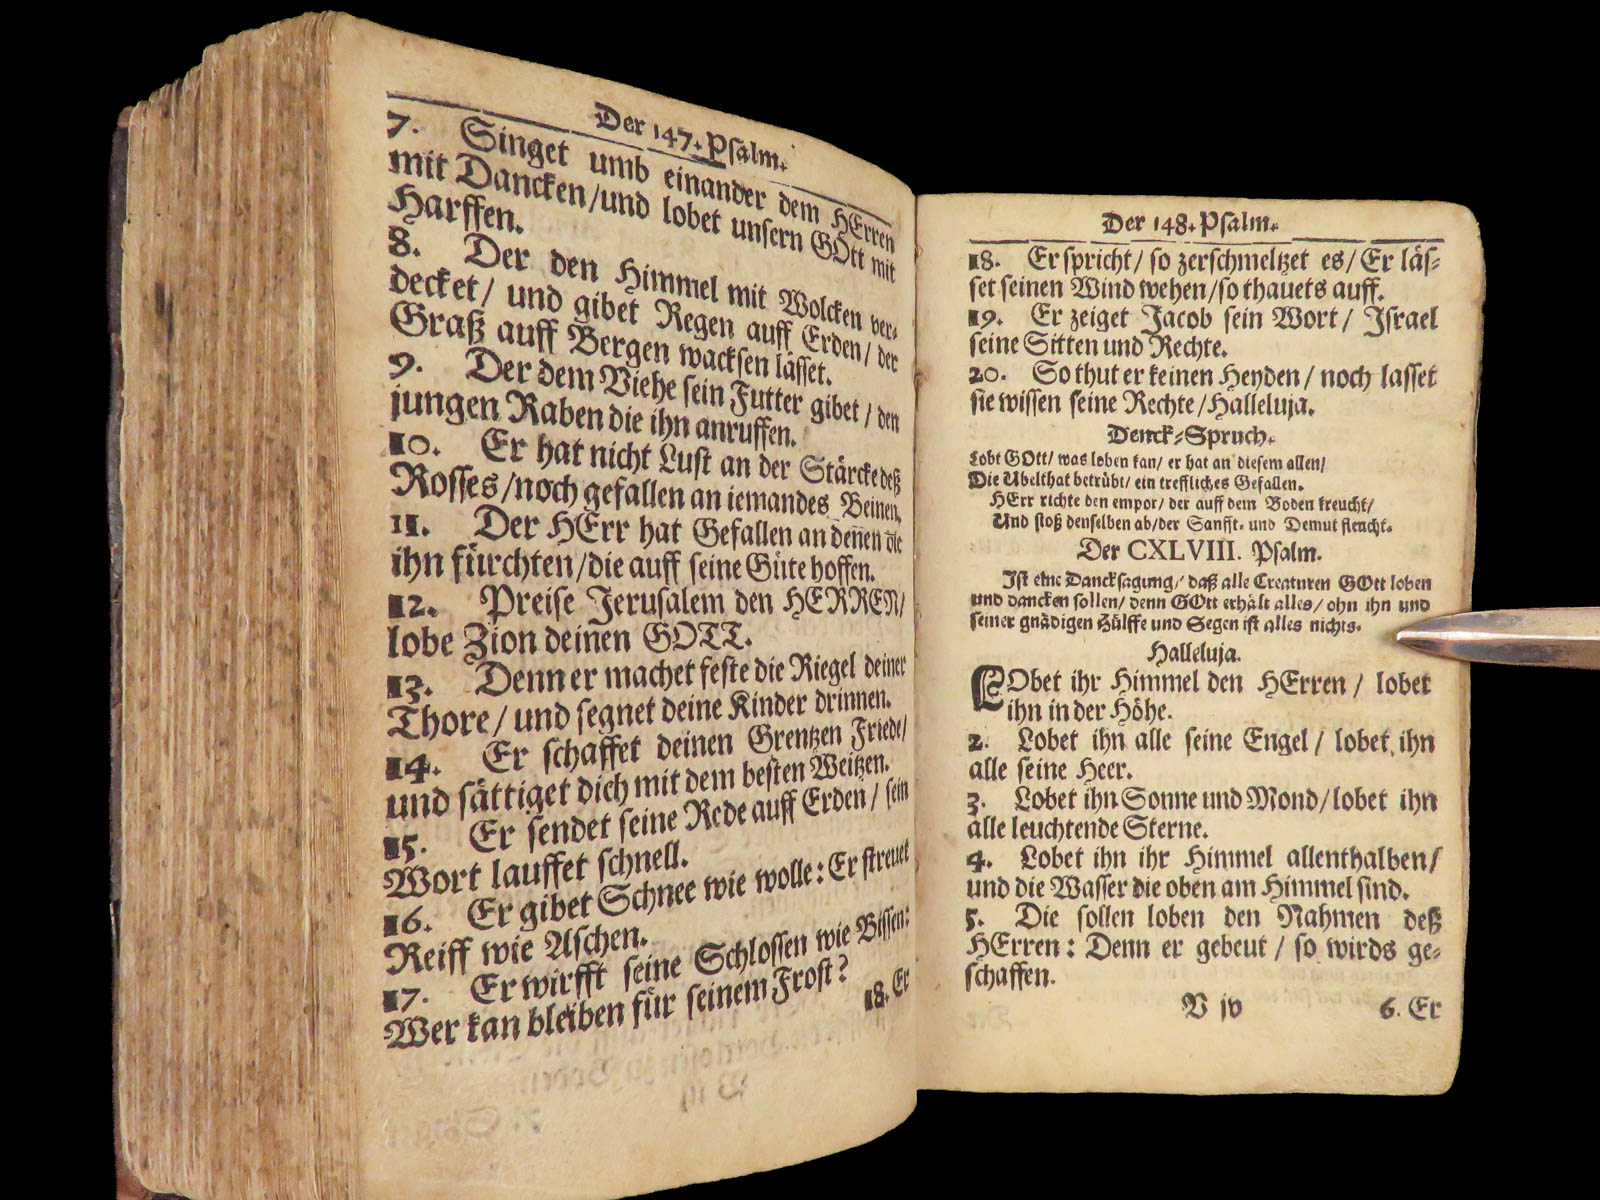 Der 147. Psalm.
7. Singet umb einander dem HErren
mit Dancken/und lobet unsern GOtt mit
Harffen.
8. Der den Himmel mit Wolcken ver-
decket/ und gibet Regen auff Erden/ der
Graß auff Bergen wachsen lässet.
9. Der dem Viehe sein Futter gibet/ den
jungen Raben die ihn anruffen.
10. Er hat nicht Lust an der Stärcke deß
Rosses/noch gefallen an iemandes Beinen.
11. Der HErr hat Gefallen an denen die
ihn fürchten/die auff seine Güte hoffen.
12. Preise Jerusalem den HERREN/
lobe Zion deinen GOTT.
13. Denn er machet feste die Riegel deiner
Thore/ und segnet deine Kinder drinnen.
14. Er schaffet deinen Grentzen Friede/
und sättiget dich mit dem besten Weitzen.
15. Er sendet seine Rede auff Erden/ sein
Wort lauffet schnell.
16. Er gibet Schnee wie wolle: Er streuet
Reiff wie Aschen.
17. Er wirfft seine Schlossen wie Bissen:
Wer kan bleiben für seinem Frost?
18. Er
Der 148. Psalm.
18. Er spricht/ so zerschmeltzet es/ Er läs-
set seinen Wind wehen/so thauets auff.
19. Er zeiget Jacob sein Wort/ Israel
seine Sitten und Rechte.
20. So thut er keinen Heyden/ noch lasset
sie wissen seine Rechte/Halleluja.
Denck-Spruch.
Lobt GOtt/ was loben kan/ er hat an diesem allen/
Die Ubelthat betrübt/ ein treffliches Gefallen.
HErr richte den empor/ der auff dem Boden kreucht/
Und stoß denselben ab/der Sanfft- und Demut fleucht.
Der CXLVIII. Psalm.
Ist eine Dancksagung/ daß alle Creaturen GOtt loben
und dancken sollen/ denn GOtt erhält alles/ ohn ihn und
seiner gnädigen Hülffe und Segen ist alles nichts.
Halleluja.
LObet ihr Himmel den HErren/ lobet
ihn in der Höhe.
2. Lobet ihn alle seine Engel/ lobet ihn
alle seine Heer.
3. Lobet ihn Sonne und Mond/lobet ihn
alle leuchtende Sterne.
4. Lobet ihn ihr Himmel allenthalben/
und die Wasser die oben am Himmel sind.
5. Die sollen loben den Nahmen deß
HErren: Denn er gebeut/ so wirds ge-
schaffen.
V iv 6. Er